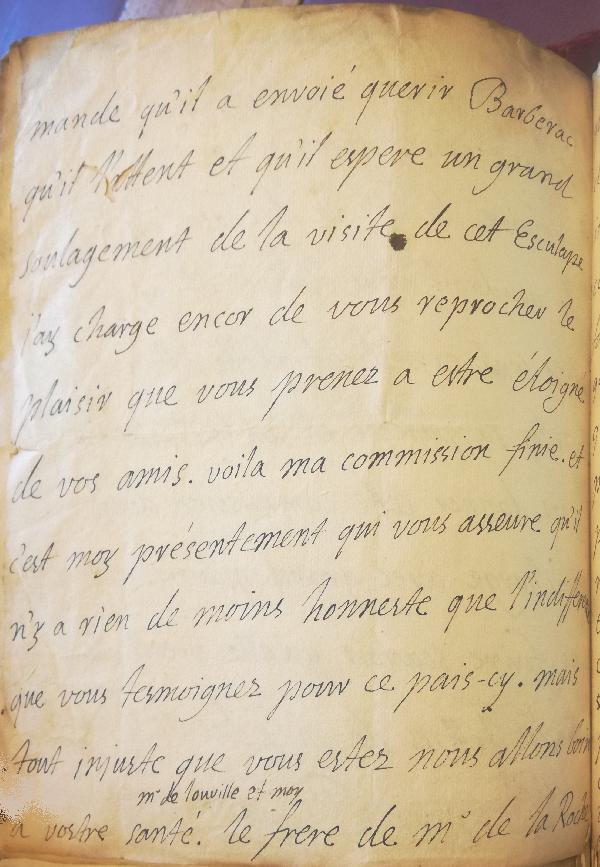 mande qu'il a envoié querir Barberac
qu'il l'attent et qu'il espere un grand
soulagement de la visite de cet Esculape
j'ay charge encor de vous reprocher le
plaisir que vous prenez a estre éloigné
de vos amis. voila ma commission finie. et
c'est moy présentement qui vous asseure qu'il
n'y a rien de moins honneste que
que vous tesmoignez pour ce pais-cy. mais
tout injuste que vous estez nous allons
mr de louville et moy
a vostre santé. le frere de mr de la